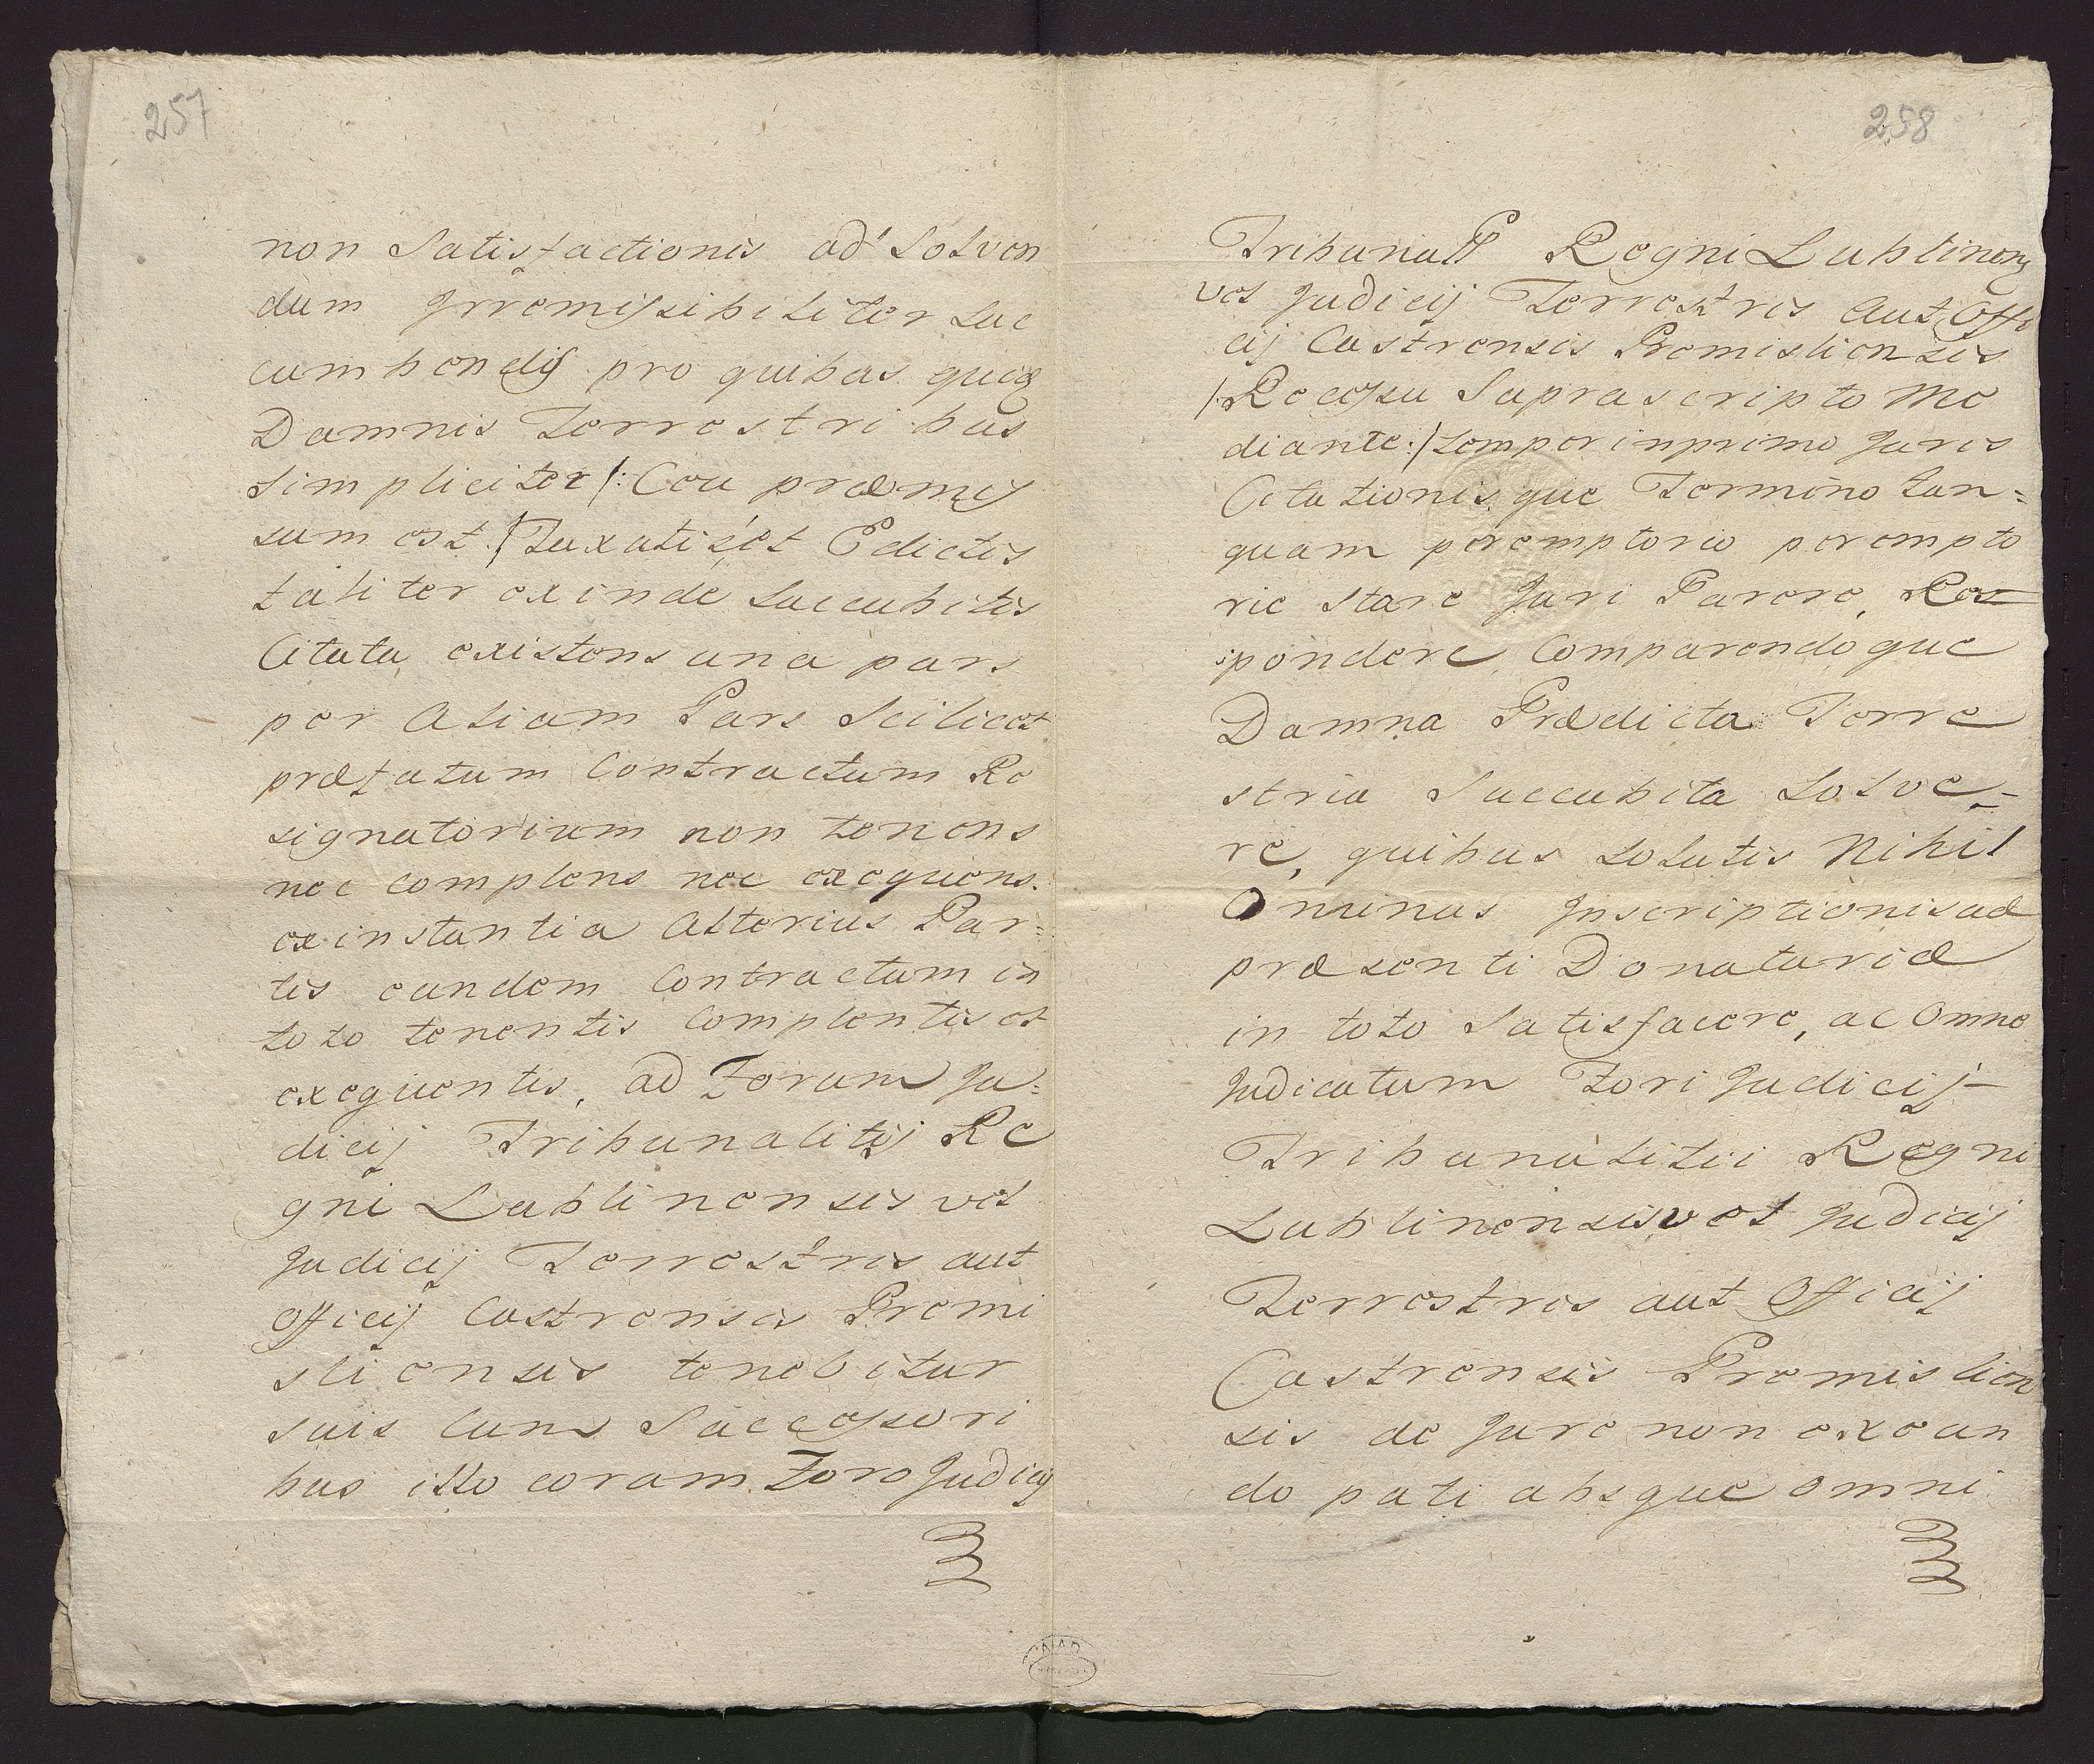 257
non Satisfactionis ad Solven
dum Irremissibiliter suc
cumbendis pro quibus quidem
Damnis Terrestribus
simpliciter /: Ceu præmis
sum est :/ Taxatis et Edictis
taliter exinde succubitis
Citata existens una pars
per Aliam Pars Scilicet
præfatum Contractum Re
signatorium non tenens
nec complens nec exequens
ex instantia Alterius Par=
tis eundem Contractum in
toto tenentis Complentis et
exequentis, ad Forum Ju=
dicij Tribunalitij Re
gni Lublinensis vel
Judicij Terrestris aut
Officij Castrensis Premi
sliensis tenebitur
suis cum Successori
bus illo coram Foro Judicij
258
Tribunall Regni Lublinens
vel Judicij Terrestris aut Offi
cij Castrensis Premisliensis
/: Recessu Suprascripto Me
diante :/ semper in primo Juris
Citationisque Termino tan=
quam peremptorio perempto
rie stare Juri Parere, Res
pondere Comparendoque
Damna Prædicta Terre
stria Succubita Solve=
re, quibus solutis Nihil
Ominus Inscriptionis ad
præsenti Donatariæ
in toto Satisfacere, ac Omne
Judicatum Fori Judicij
Tribunalitii Regni
Lublinensis vel Judicij
Terrestris aut Officij
Castrensis Premislien
sis de Jure non exean
do pati absque omni